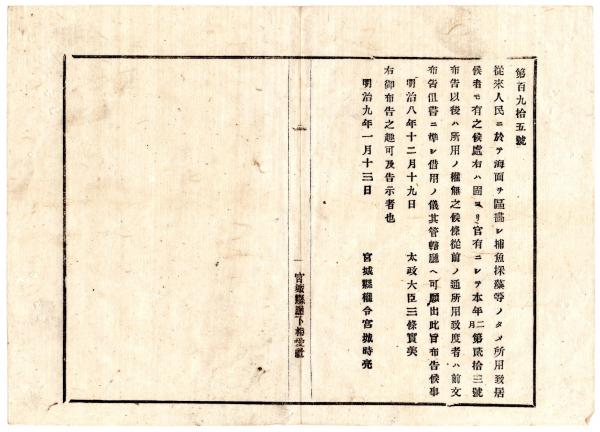 第百九拾五號
從來人民ニ於テ海面ヲ區畫シ捕魚採藻等ノタメ所用致居
候者モ有之候處右ハ固ヨリ官有ニシテ本年二月第貳拾三號
布告以後ハ所用ノ權無之候條從前ノ通所用致度者ハ前文
布告但書ニ準シ借用ノ儀其管轄廳ヘ可願出此旨布告候事
明治八年十二月十九日
太政大臣三條實美
右御布告之趣可及告示者也
明治九年一月十三日
宮城縣權令宮城時亮
宮城縣廳下相愛社